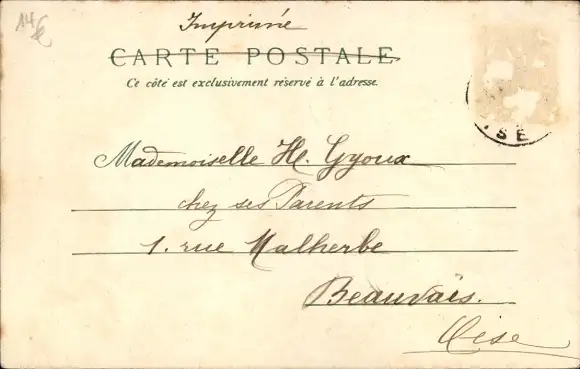 14€
Imprimée
CARTE POSTALE
Ce côté est exclusivement réservé à l'adresse.
ISE
Mademoiselle H. Gyoux
chez ses Parents
1. rue Malherbe
Beauvais.
Oise